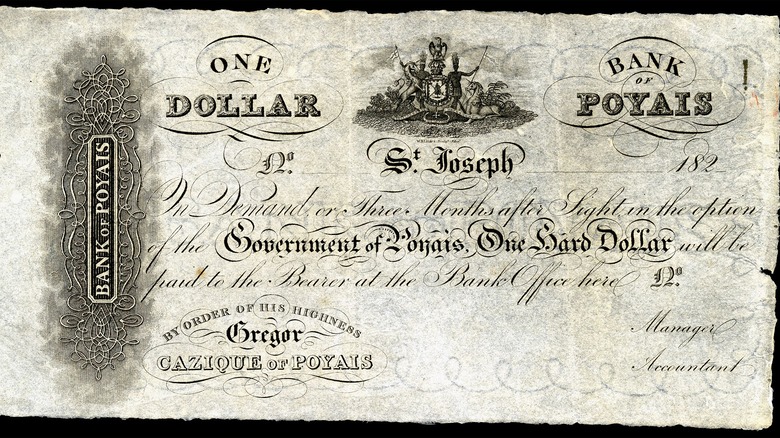 BANK OF POYAIS
ONE
DOLLAR
BANK
OF
POYAIS
No
St. Joseph
182
On Demand, or Three Months after Sight, in the option
of the Government of Poyais, One Hard Dollar will be
paid to the Bearer at the Bank Office here No
BY ORDER OF HIS HIGHNESS
Gregor
CAZIQUE OF POYAIS
Manager
Accountant